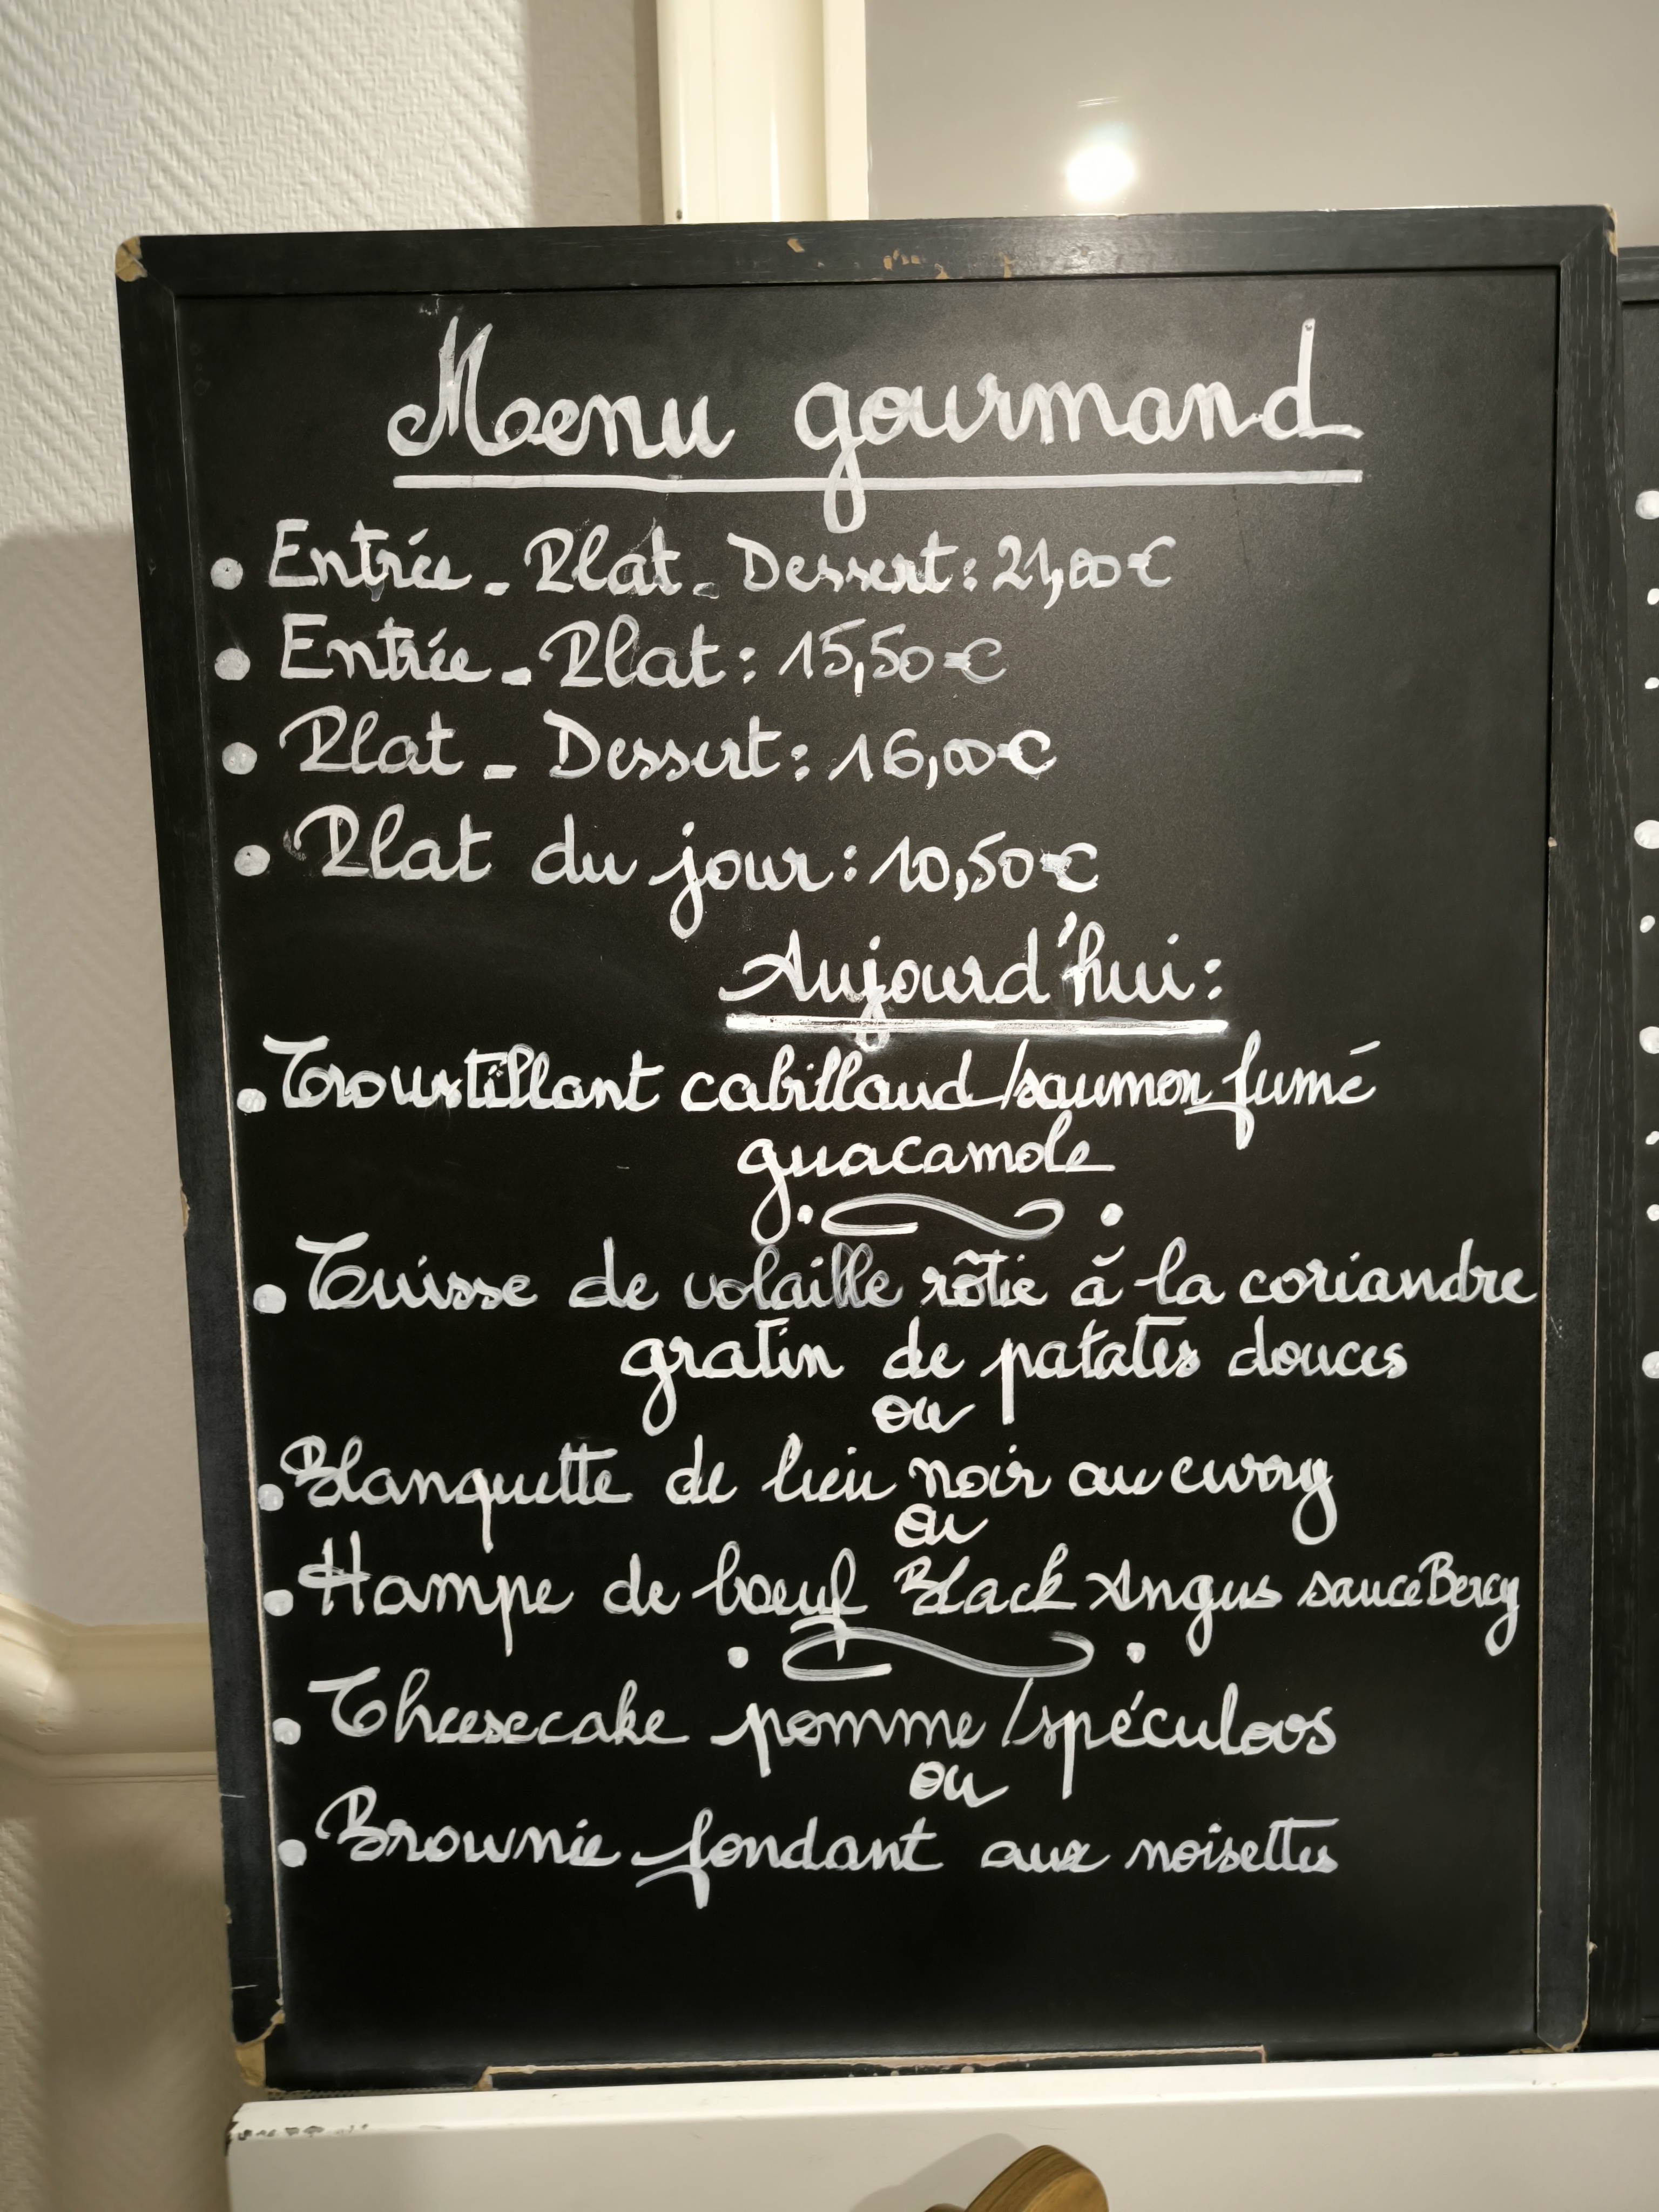 Menu gourmand
• Entrée - Plat - Dessert : 21,00€
• Entrée - Plat : 15,50€
• Plat - Dessert : 16,00€
• Plat du jour : 10,50€
Aujourd'hui :
• Croustillant cabillaud/saumon fumé
guacamole
• Cuisse de volaille rôtie à la coriandre
gratin de patates douces
ou
• Blanquette de lieu noir au curry
ou
• Hampe de boeuf Black Angus sauce Bercy
• Cheesecake pomme/spéculoos
ou
• Brownie fondant aux noisettes